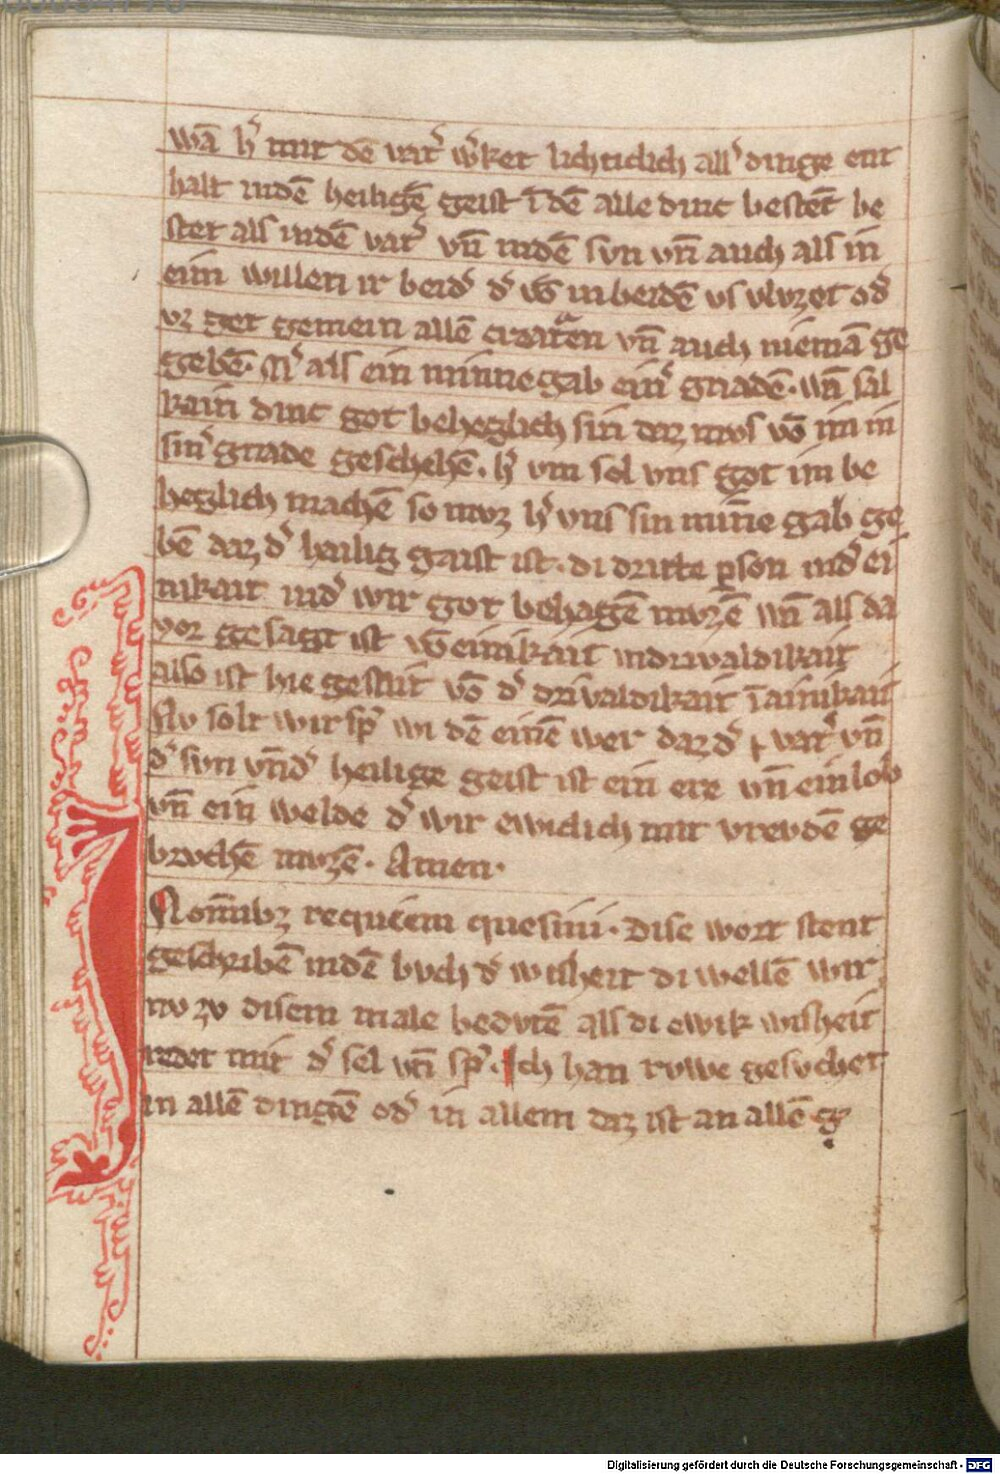 wā h᷎ mit dē vat᷎ w᷎ket lichticlich all᷎ dinge ent
halt indē heiligē geist ī dē alle dinc bestēt be
stet als indē vat᷎ vn̄ indē svn vn̄ auch als in
ein willen ir beid᷎ d᷎ vō in beidē vs od᷎
vz get gemein allē creatrēn vn̄ auch niemā ge
gebē. als ein minne gab ein᷎ gnadē. wn̄ sal
kain dinc got beheglich sin daz mvs vō im in
sin᷎ gnade geschehē. h᷎ vm sol vns got im be
heglich machē so mvz h᷎ vns sin min̄e gab ge
bē daz d᷎ heilig gaist ist. di dritte p̲son ind᷎ ei
nikait ind᷎ wir got behagē mvzē wn̄ als da
vor gesagt ist vō einikait in drivaldikait
also ist hie gesait vō d᷎ drivaldikait ī ainikait
Nv solt wir sp᷎ wi dē einē wer daz d᷎ vat᷎ vn̄
d᷎ svn vn̄ d᷎ heilige geist ist ein ere vn̄ ein lob
vn̄ ein welde d᷎ wir ewiclich mit vrevdē ge
brvchē mvzē. Amen.
In om̄ibꝫ requiem quesiui. Dise wort stent
geschribē indē bvch d᷎ wisheit di wellē wir
nv zv disem male bedvtē als di ewik wisheit
redet mit d᷎ sel vn̄ sp᷎. Ich han rvwe gesvchet
in allē dingē od᷎ in allem daz ist an allē g
Digitalisierung gefördert durch die Deutsche Forschungsgemeinschaft - DFG